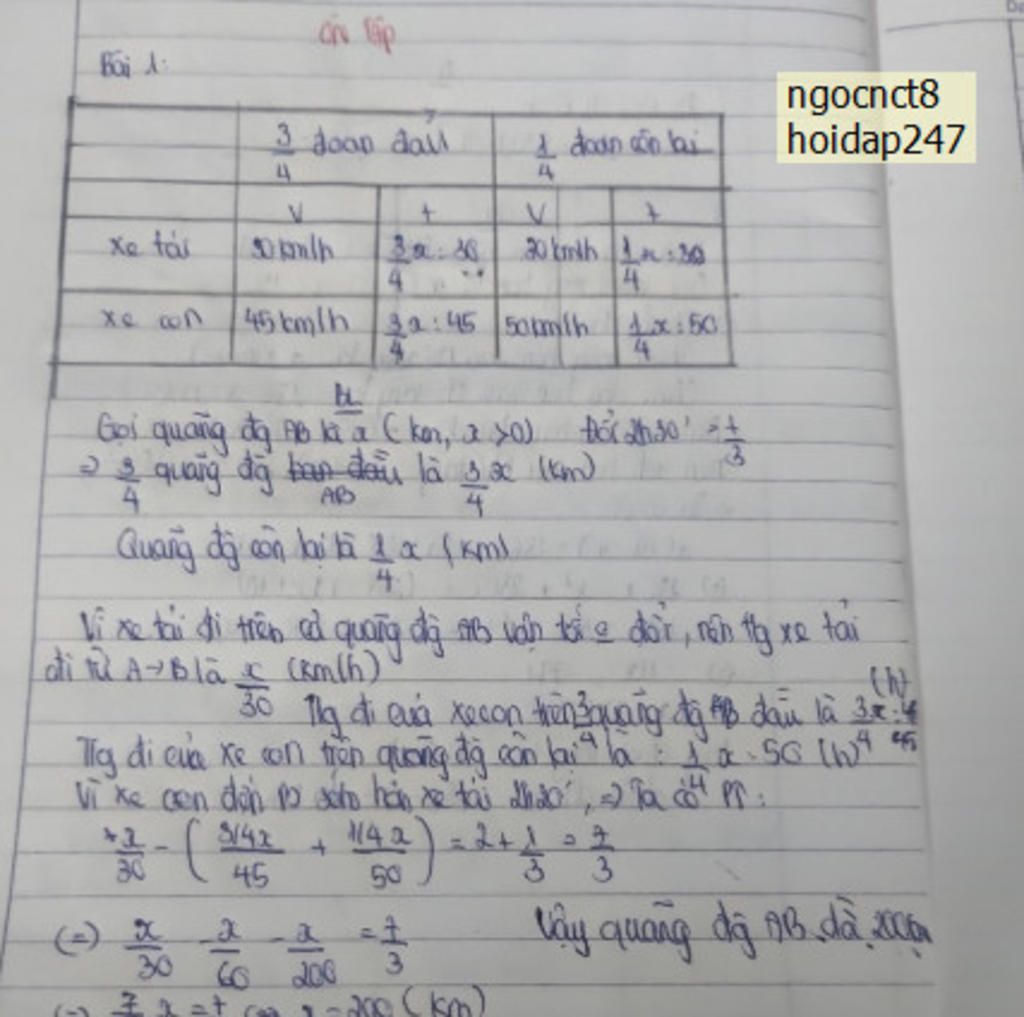 Ôn tập
Bài 1:
ngocnct8
hoidap247
3/4 đoạn đầu 1/4 đoạn còn lại
v t v t
xe tải 30km/h 3/4x:30 30km/h 1/4x:30
xe con 45km/h 3/4x:45 50km/h 1/4x:50
Gọi quãng đg AB là x (km, x>0) Đổi 2h20' = 7/3
=> 3/4 quãng đg AB là 3/4x (km)
Quãng đg còn lại là 1/4x (km)
Vì xe tải đi trên cả quãng đg AB vận tốc đổi, nên tg xe tải
đi từ A→B là x/30 (km/h)
Tg đi của xe con trên 3/4 quãng đg AB đầu là 3/4x:45 (h)
Tg đi của xe con trên quãng đg còn lại là : 1/4x:50 (h)
Vì xe con đến B sớm hơn xe tải 2h20', => Ta có PT:
x/30 - (3/4x/45 + 1/4x/50) = 2 + 1/3 = 7/3
(=) x/30 - x/60 - x/200 = 7/3
Vậy quãng đg AB dài 200km
x = 200 (km)